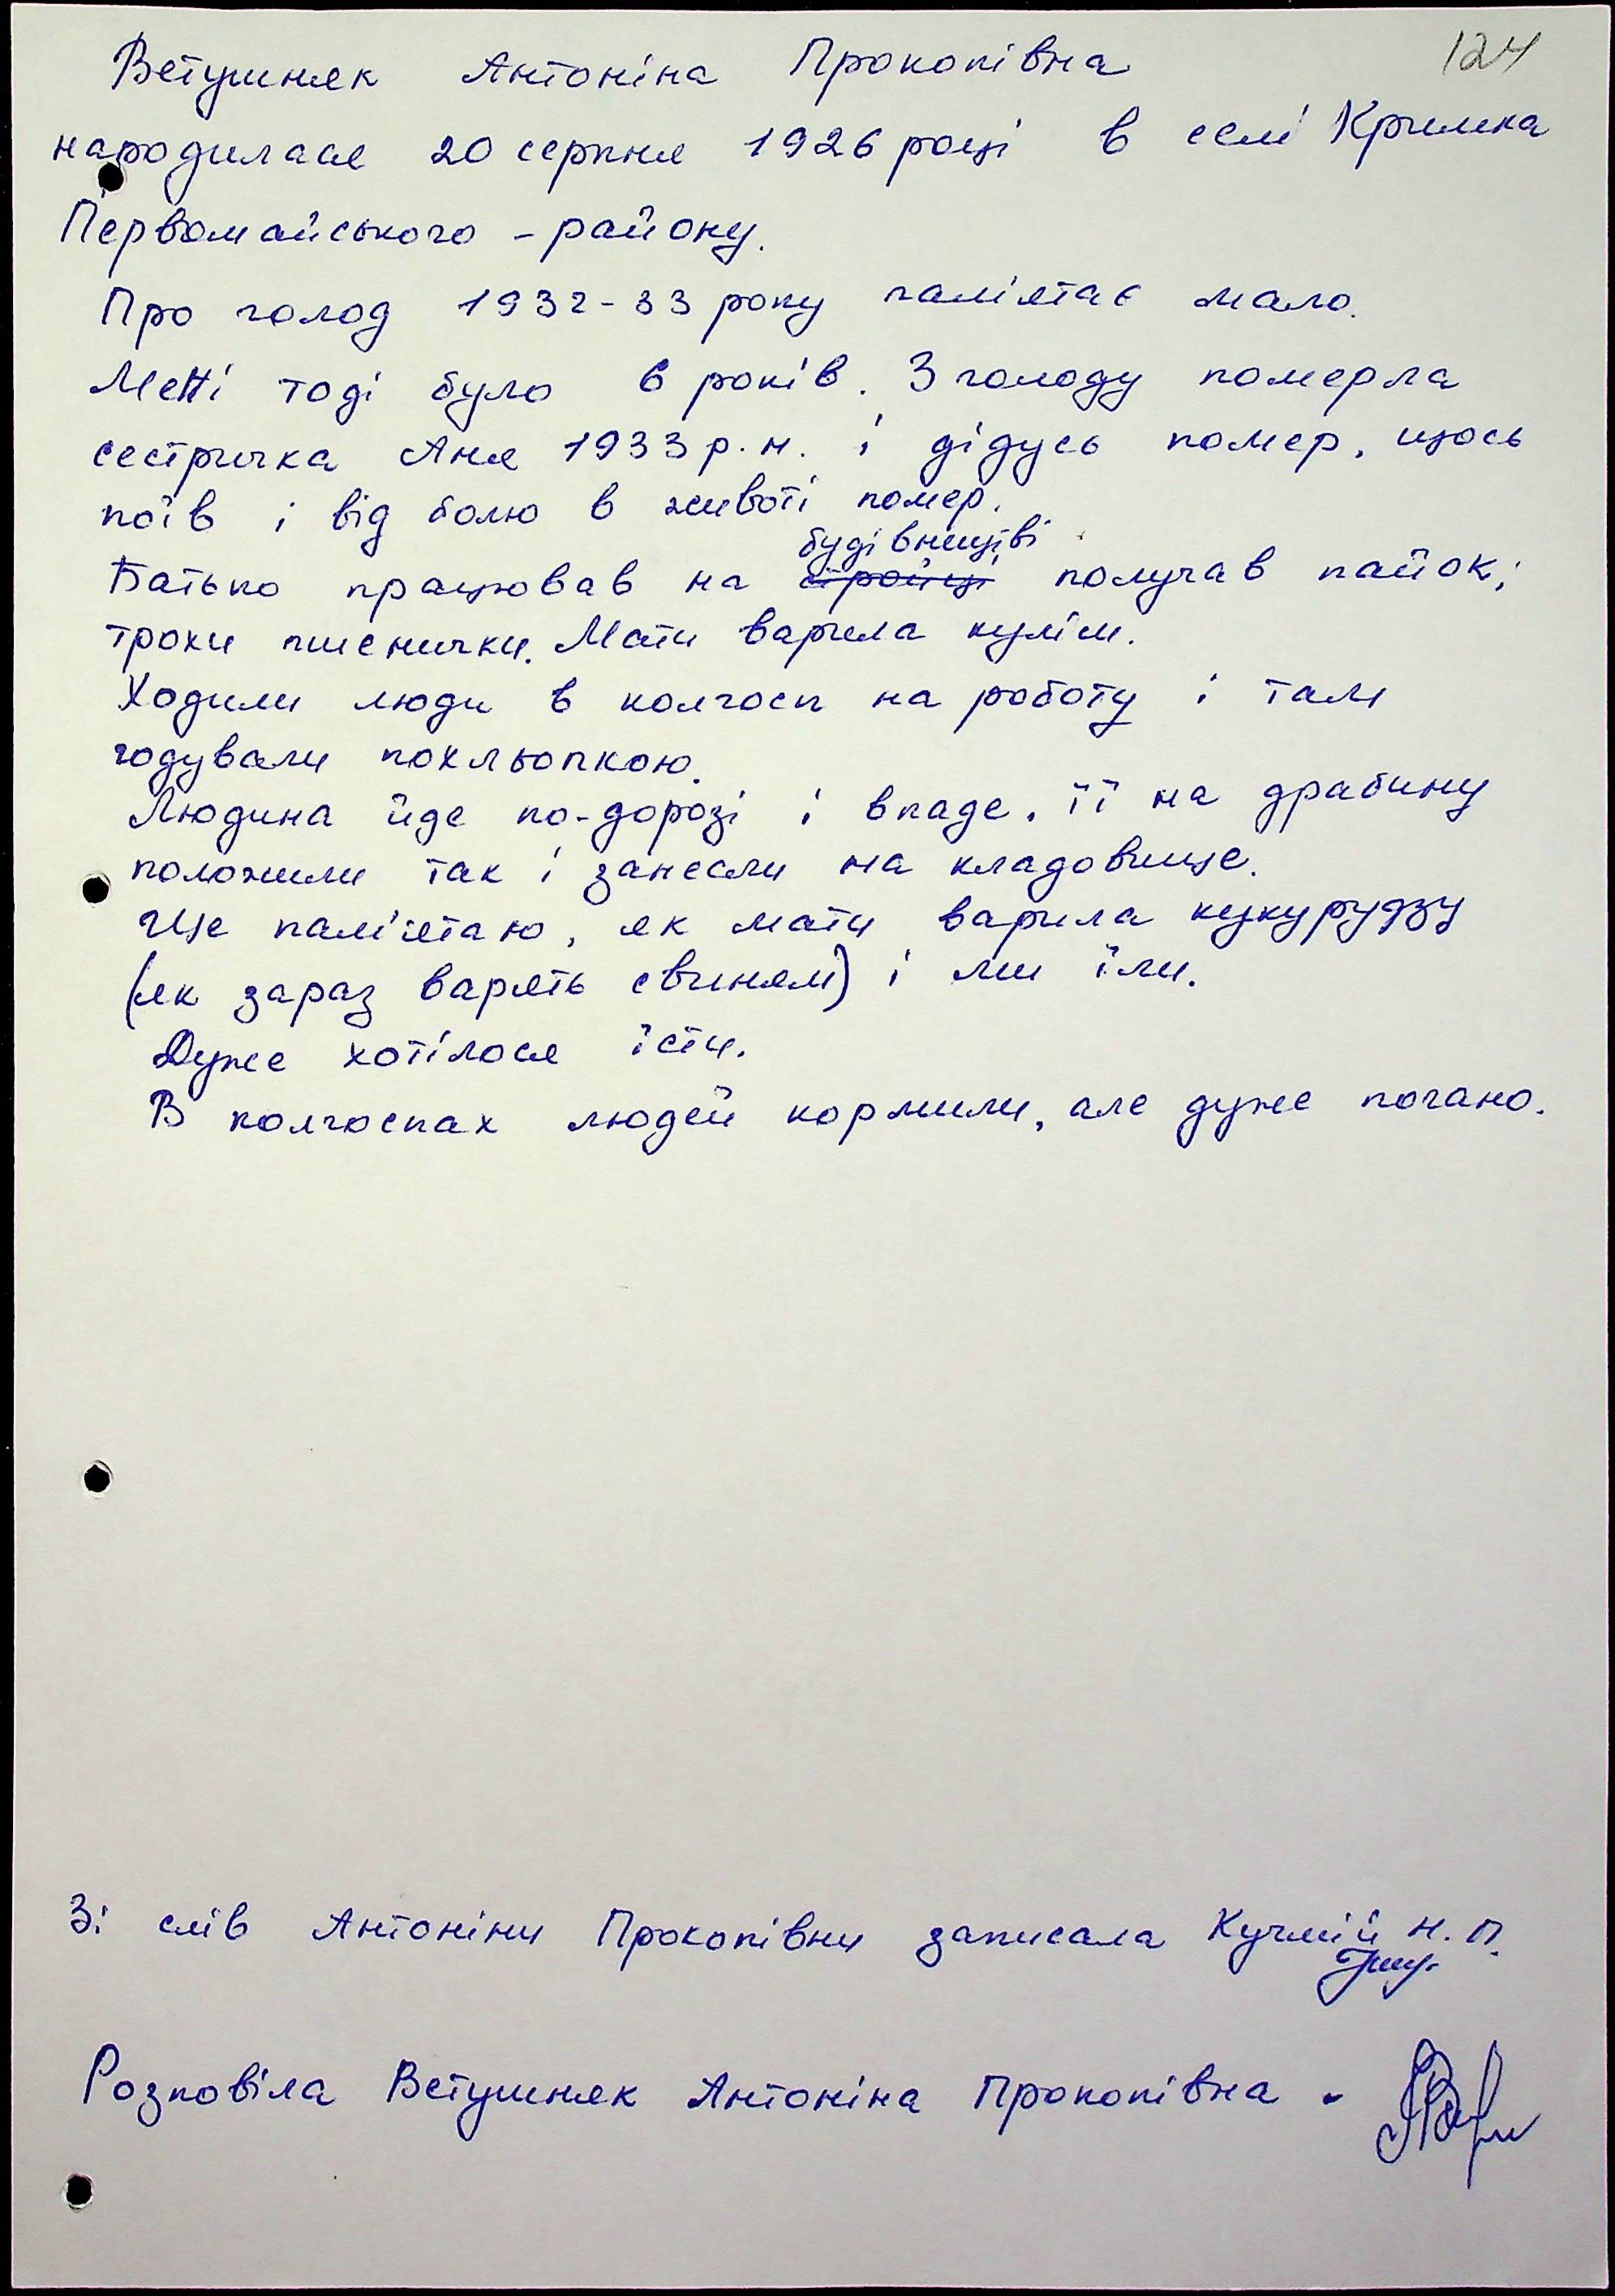 124
Ветушняк Антоніна Прокопівна
народилася 20 серпня 1926 році в селі Кримка
Первомайського - району.
Про голод 1932-33 року памʼятає мало.
Мені тоді було 6 років. З голоду померла
сестричка Аня 1933 р.н. і дідусь помер, щось
поїв і від болю в животі помер.
будівництві
Батько працював на стройці получав пайок;
трохи пшенички. Мати варила куліш.
Ходили люди в колгосп на роботу і там
годували похльопкою.
Людина йде по-дорозі і впаде. її на драбину
положили так і занесли на кладовище.
Ще пам'ятаю, як мати варила кукурудзу
(як зараз варять свиням) і ми їли.
Дуже хотілося їсти.
В колгоспах людей кормили, але дуже погано.
Зі слів Антоніни Прокопівни записала Кучмій Н.П.
Розповіла Ветушняк Антоніна Прокопівна -